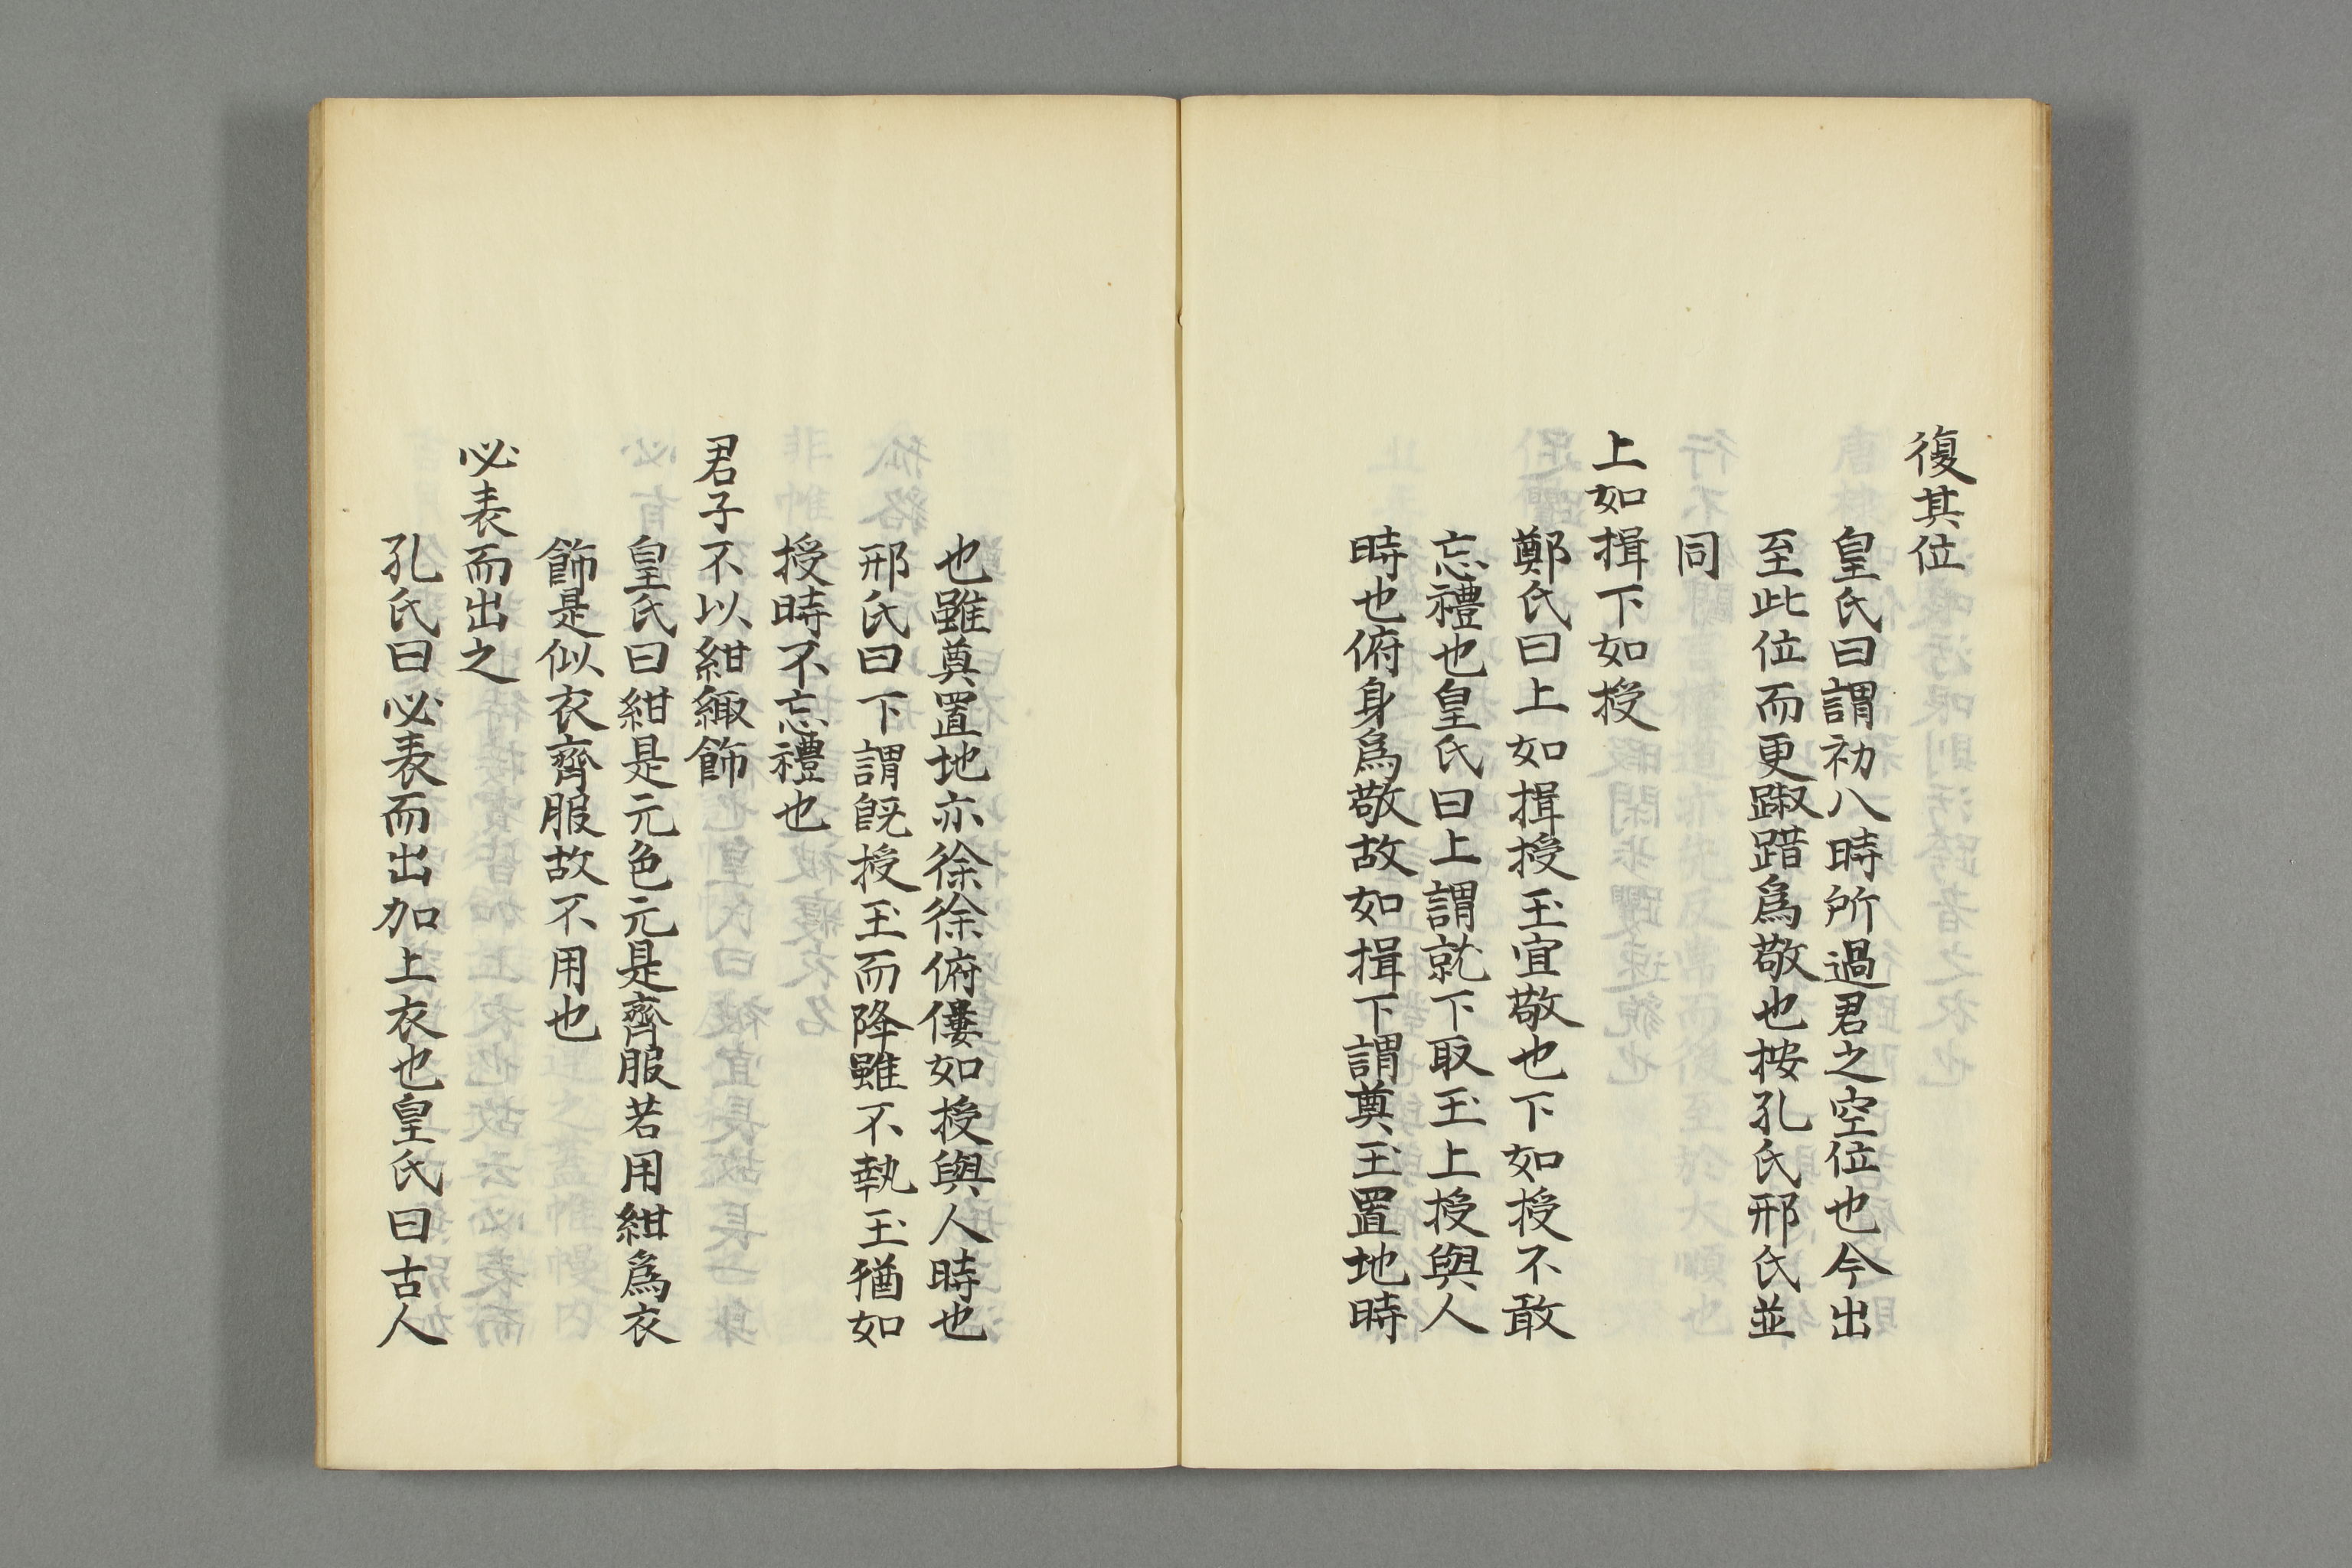 復其位
皇氏曰謂初入時所過君之空位也今出
至此位而更踧踖爲敬也按孔氏邢氏並
同
上如揖下如授
鄭氏曰上如揖授玉宜敬也下如授不敢
忘禮也皇氏曰上謂就下取玉上授與人
時也俯身爲敬故如揖下謂奠玉置地時
也雖奠置地亦徐徐俯僂如授與人時也
邢氏曰下謂旣授玉而降雖不執玉猶如
授時不忘禮也
君子不以紺緅飾
皇氏曰紺是元色元是齊服若用紺爲衣
飾是似衣齊服故不用也
必表而出之
孔氏曰必表而出加上衣也皇氏曰古人